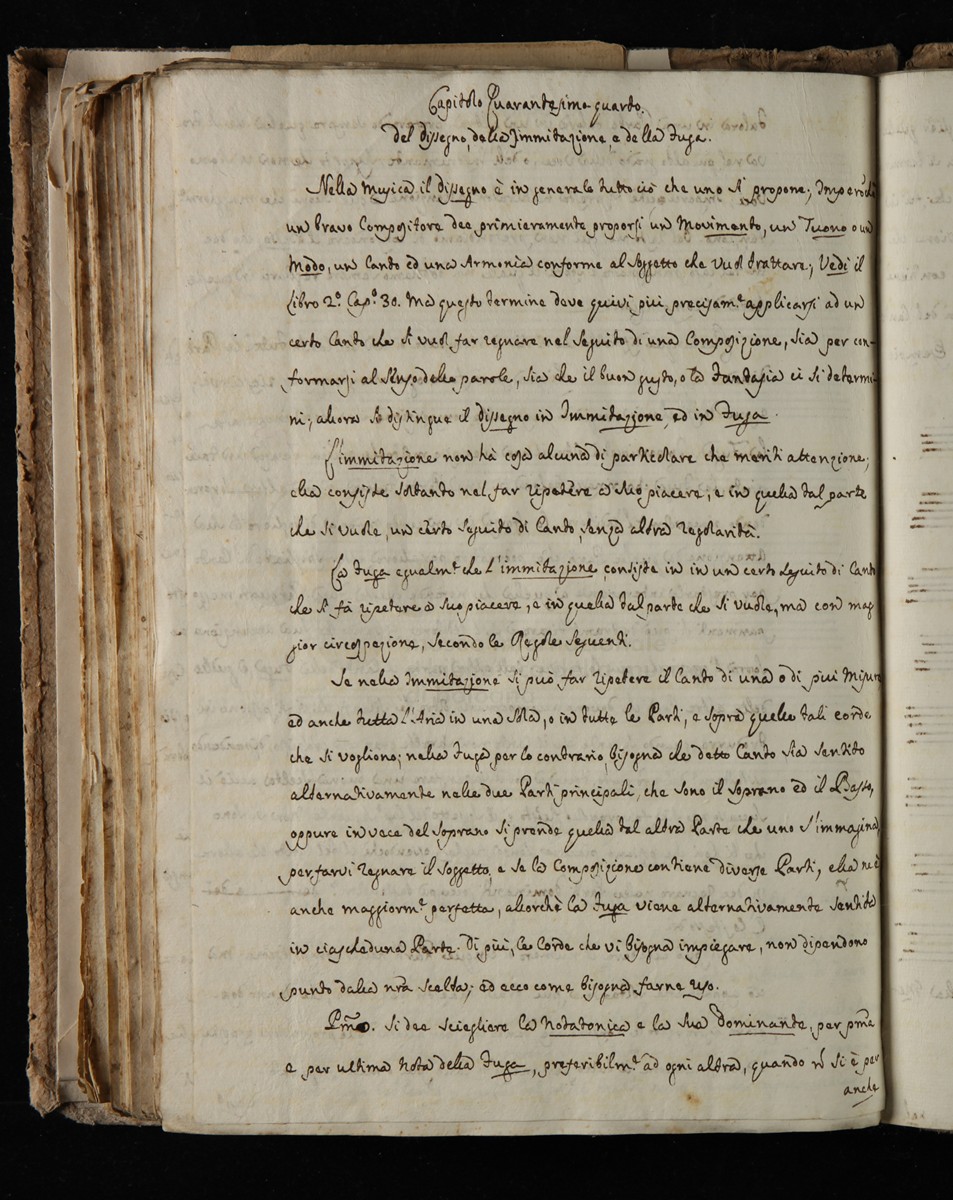 Capitolo Quarantesimo quarto.
Del dissegno, della Immitazione, e della Fuga.
Nella Musica il dissegno è in generale tutto ciò che uno si propone; Imperochè
un bravo Compositore dee primieramente proporsi un Movimento, un Tuono o un
Modo, un Canto ed una Armonia conforme al Soggetto che vuol trattare; Vedi il
Libro 2.º Cap.º 30. Ma questo termine deve quivi più precisam.e applicarsi ad un
certo Canto che si vuol far regnare nel Seguito di una Composizione, sia per con-
formarsi al Senso delle parole, sia che il buon gusto, o la Fantasia ci si determi-
ni; allora si distingue il dissegno in Immitazione, ed in Fuga.
L'immitazione non hà cosa alcuna di particolare che meriti attenzione;
ella consiste soltanto nel far ripetere a suo piacere, e in quella tal parte
che si vuole, un certo seguito di Canto, senza altra regolarità.
La Fuga egualm.e che l'immitazione, consiste in in un certo seguito di Canto
che si fà ripetere a suo piacere, e in quella tal parte che si vuole, ma con mag
gior circospezione, secondo le Regole seguenti.
Se nella Immitazione si può far ripetere il Canto di una o di più Misure
ed anche tutta l'Aria in una sola, o in tutte le Parti, e sopra quelle tali corde
che si vogliono; nella Fuga per lo contrario, bisogna che detto Canto sia sentito
alternativamente nelle due Parti principali, che sono il Soprano ed il Basso,
oppure in vece del Soprano si prende quella tal altra Parte che uno s'immagina
per farvi regnare il Soggetto, e se la Composizione contiene diverse Parti, ella ne è
anche maggiorm.e perfetta, allorchè la Fuga viene alternativamente sentita
in ciascheduna Parte. Di più, le Corde che vi bisogna impiegare, non dipendono
punto dalla nrã scelta; ed ecco come bisogna farne uso.
Pmo. Si dee sciegliere la Notatonica e la sua Dominante, per pma
e per ultima nota della Fuga, preferibilm.e ad ogni altra, quando ñ si è per
anche